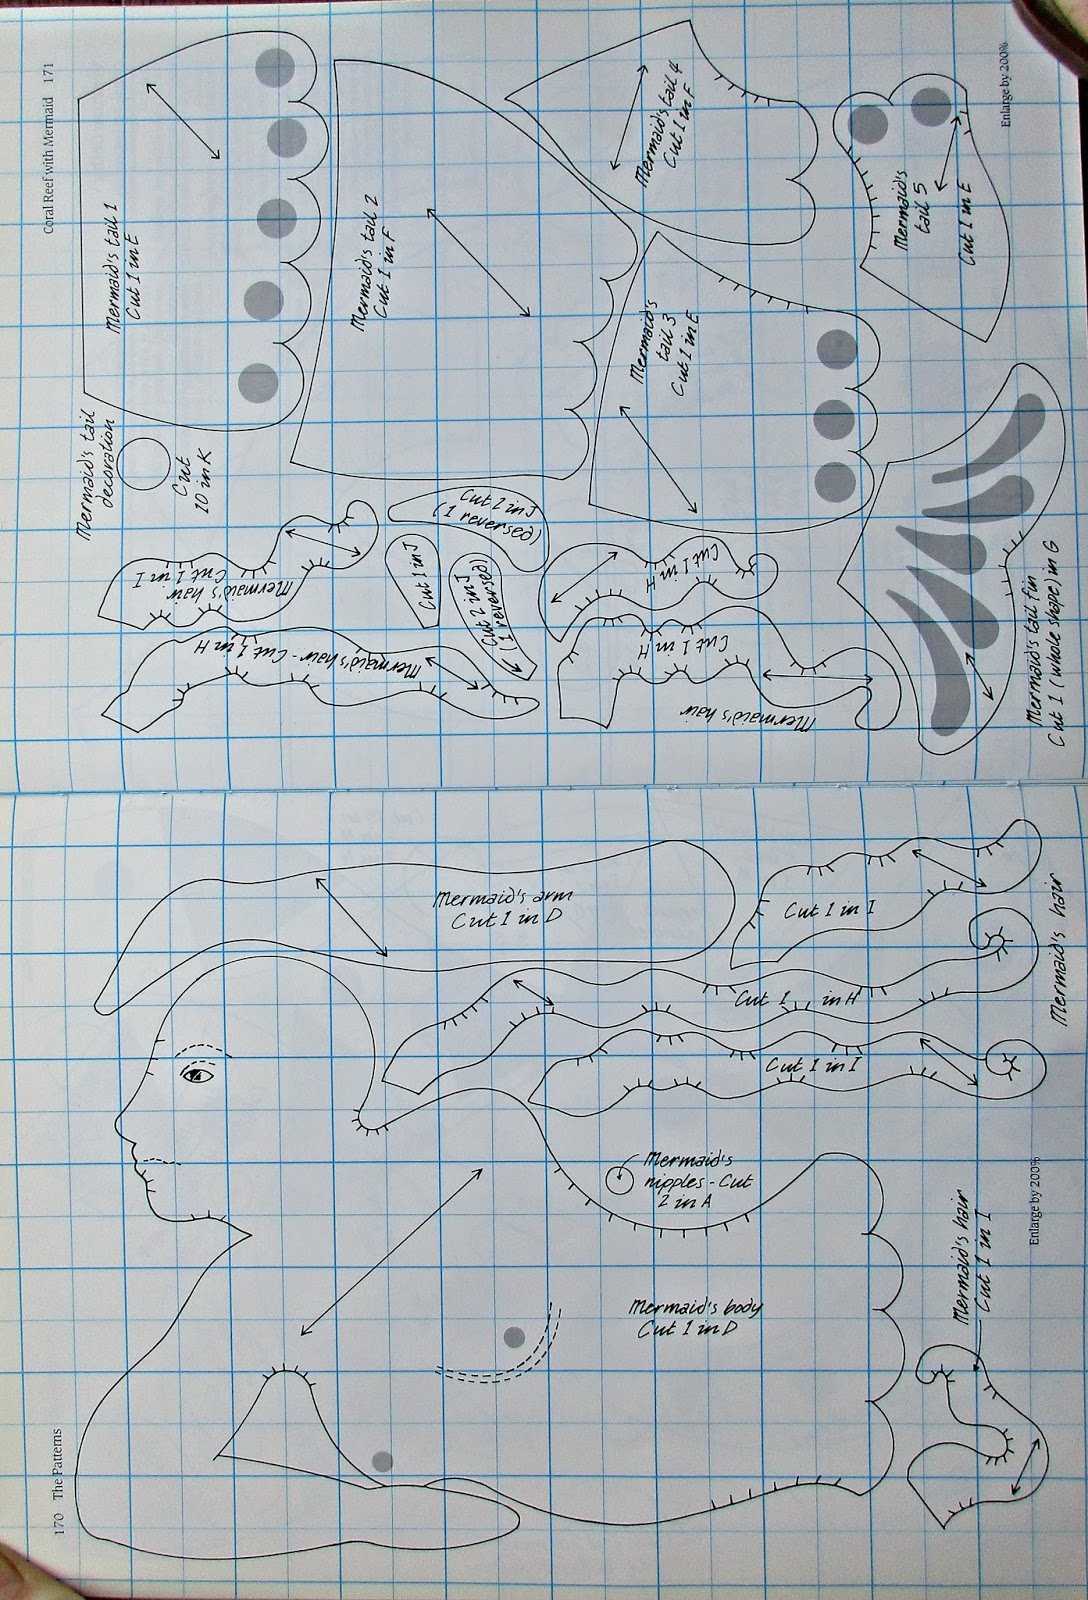 Coral Reef with Mermaid 171
Enlarge by 200%
Mermaid's tail 1
Cut 1 in E
Mermaid's tail 2
Cut 1 in F
Mermaid's tail 4
Cut 1 in F
Mermaid's
tail 3
Cut 1 in E
Mermaid's
tail 5
Cut 1 in E
Mermaid's tail
decoration
Cut
10 in K
Mermaid's hair
Cut 1 in I
Mermaid's hair - Cut 1 in H
Cut 2 in J
(1 reversed)
Cut 1 in J
Cut 2 in J
(1 reversed)
Cut 1 in H
Cut 1 in H
Mermaid's hair
Mermaid's tail fin
Cut 1 (whole shape) in G
Mermaid's arm
Cut 1 in D
Cut 1 in I
Cut 1 in H
Cut 1 in I
Mermaid's hair
Mermaid's
nipples - Cut
2 in A
Mermaid's body
Cut 1 in D
Mermaid's hair
Cut 1 in I
Enlarge by 200%
170 The Patterns